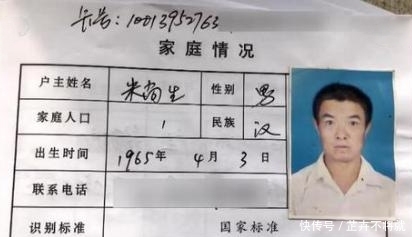 卡号:10013952763
家庭情况
户主姓名 米尚生 性别 男
家庭人口 1 民族 汉
出生时间 1965年 4月 3日
联系电话
识别标准 国家标准
快传号/芷卉不将就